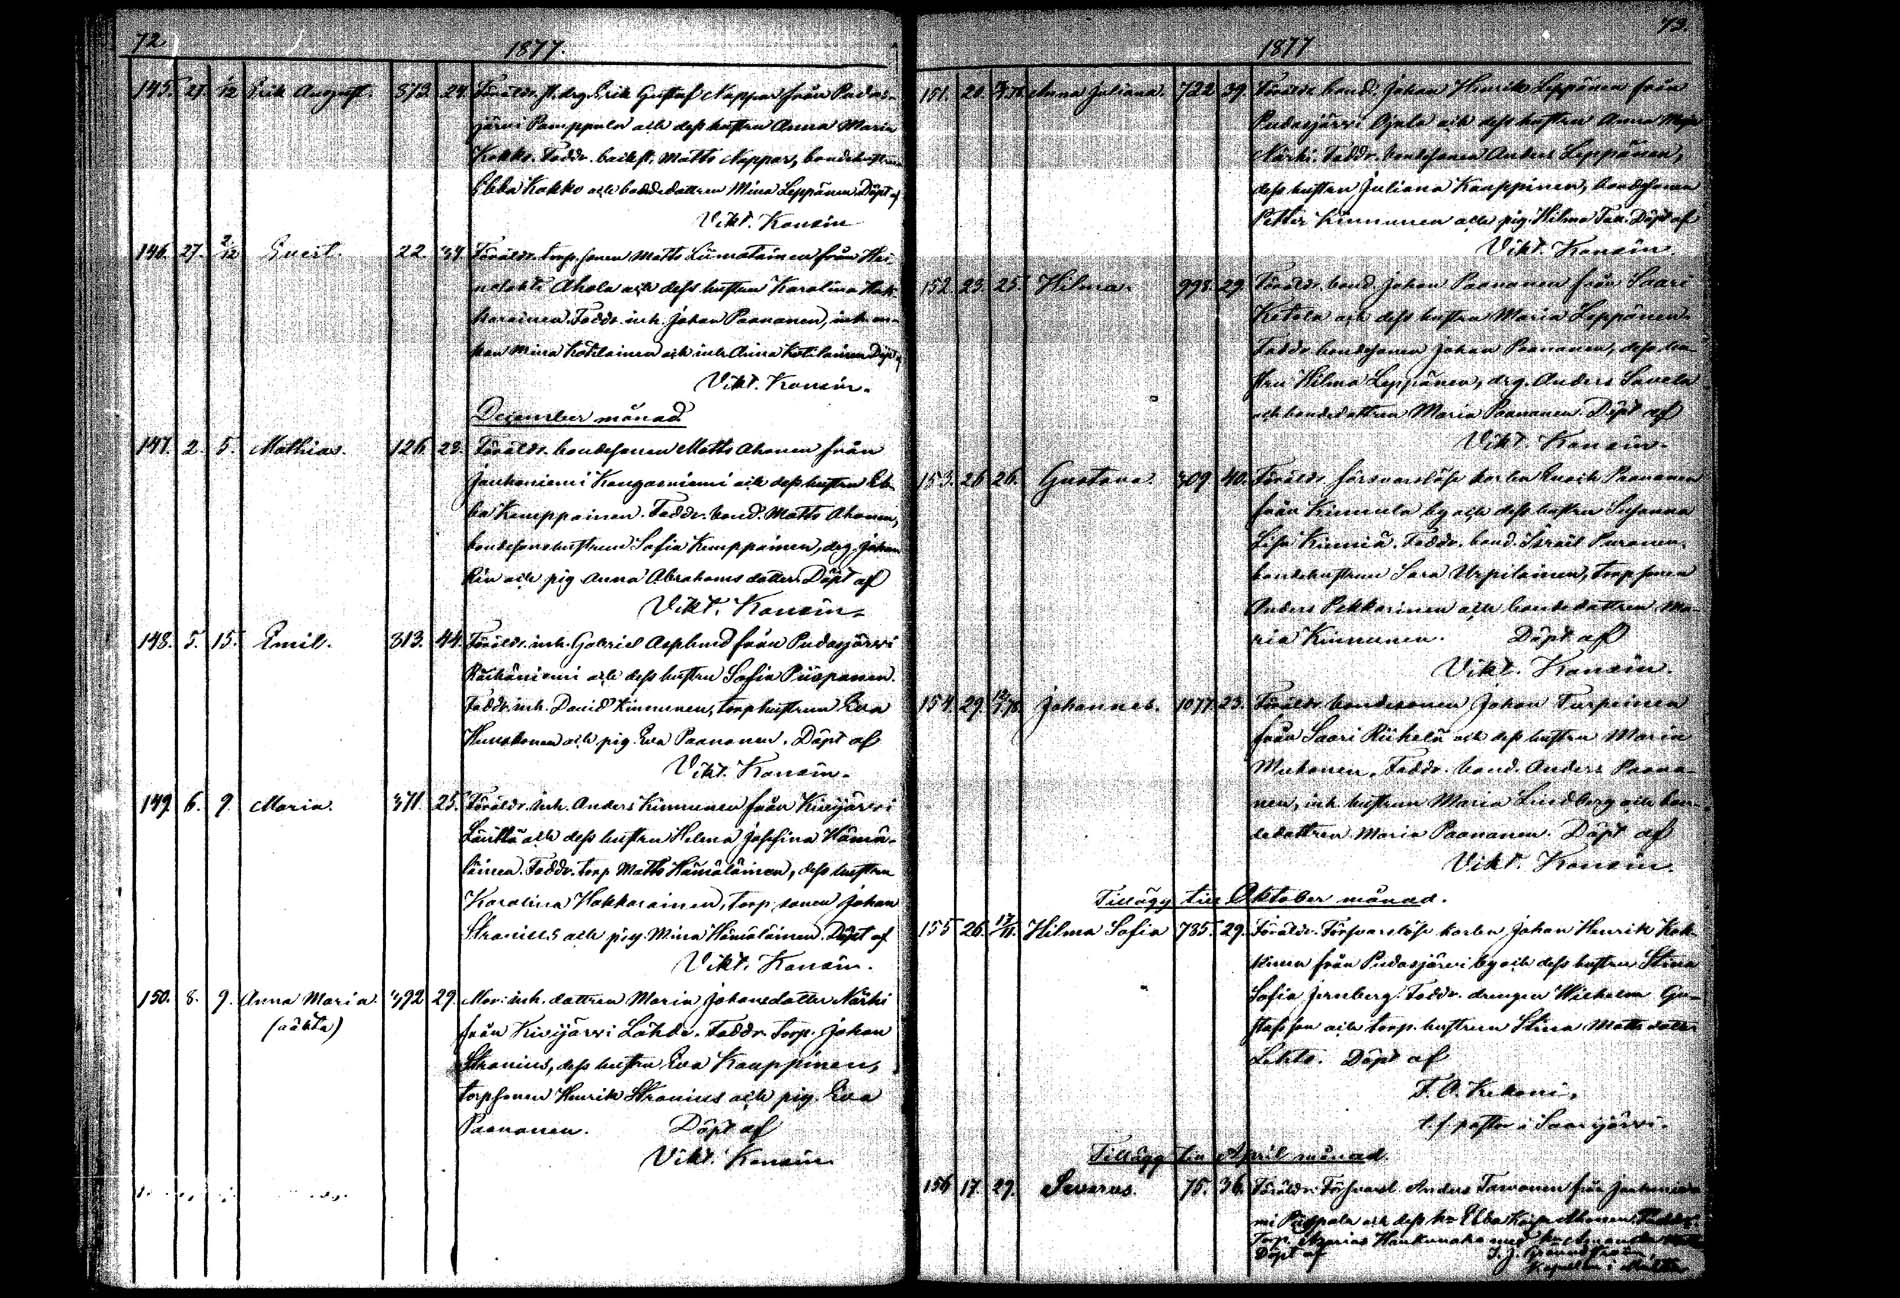 72
1877.
145. 27. 1/12 Erik August. 373. 24. Föräldr. st. drg. Erik Gustaf Nappar från Pudas-
järvi Pamppula och dess hustru Anna Maria
Kokko. Faddr. backst. Matts Nappar, bondehustrun
Ebba Kokko och bondedottren Mina Leppänen Döpt af
Vikt. Konsin
146. 27. 2/12 22. 34. Föräldr. torp. sonen Matts Liimatainen från
Ahola och dess hustru Karolina
Faddr. inh. Johan Paananen, inh.
Mina Kotilainen och inh. Anna Kotilainen Döpt af
Vikt. Konsin.
December månad
147. 2. 5. Mathias. 126. 23. Föräldr. bondesonen Matts Ahonen från
Kangasniemi och dess hustru Eb-
ba Kemppainen. Faddr. bond. Matts Ahonen,
bondesonshustrun Sofia Kemppainen, drg. Johan
och pig. Anna Abrahams dotter. Döpt af
Vikt. Konsin.
148. 5. 15. Emil. 313. 44. Föräldr. inh. Gabriel Asplund från Pudasjärvi
Räihäniemi och dess hustru Sofia Piispanen.
Faddr. inh. David Kinnunen, torp hustrun Eva
och pig. Eva Paananen. Döpt af
Vikt. Konsin.
149. 6. 9. Maria. 371. 25. Föräldr. inh. Anders Kinnunen från Kivijärvi
och dess hustru Helena Josefina Hämä-
läinen. Faddr. torp Matts Hämäläinen, dess hustru
Karolina Hakkarainen, torp. sonen Johan
Stranius och pig. Mina Hämäläinen. Döpt af
Vikt. Konsin.
150. 8. 9. Anna Maria. 392 29. Mor: inh. dottren Maria Johansdotter Närhi
(oäkta) från Kivijärvi Lähde. Faddr. Torp. Johan
Stranius, dess hustru Eva Kauppinen,
torpsonen Henrik Stranius och pig. Eva
Paananen. Döpt af
Vikt. Konsin
73.
1877
151. 20. Anna Juliana. 722 39. Föräldr. bond. Johan Henrik Leppänen från
Pudasjärvi Ojala och dess hustru Anna
Närhi. Faddr. bondesonen Anders Leppänen,
dess hustru Juliana Kauppinen, bondesonen
Petter Kinnunen och pig. Hilma Döpt af
Vikt. Konsin.
152. 23. 25. Hilma. 998. 29. Föräldr. bond. Johan Paananen från Saari
Ketola och dess hustru Maria Leppänen.
Faddr. bondesonen Johan Paananen, dess hu-
stru Hilma Leppänen, drg. Anders Savela
och bondedottren Maria Paananen. Döpt af
Vikt. Konsin.
153. 26 26. Gustava. 309 40. Föräldr. försvarslöse karlen Enoch Paananen
från Kinnula by och dess hustru Susanna
Lisa Kinniä. Faddr. bond. Israel Puranen,
bondehustrun Sara Urpilainen, torp sonen
Anders Pekkarinen och bondedottren Ma-
ria Kinnunen. Döpt af
Vikt. Konsin.
154. 29. 12/1 78. Johannes. 1077. 23. Föräldr. bondesonen Johan Turpeinen
från Saari Riihelä och dess hustru Maria
Muhonen. Faddr. bond. Anders Paana-
nen, inh. hustrun Maria Lindberg och bon-
dedottren Maria Paananen. Döpt af
Vikt. Konsin.
Tillägg till Oktober månad.
155 26. 17/11. Hilma Sofia 735. 29. Föräldr. Försvarslöse karlen Johan Henrik Kok-
kinen från Pudasjärvi by och dess hustru Stina
Sofia Jernberg. Faddr. drengen Wilhelm Gu-
stafsson och torp. hustrun Stina Mattsdotter
Lehto. Döpt af
F. O. Kekoni,
t. f. pastor i Saarijärvi.
Tillägg till April månad.
156 17. 29. Severus. 75. 36. Föräldr: Försvarsl. Anders Tarvonen från
Piispala och dess h:u Ebba Kaisa Ahonen. Faddr:
Torp. Asarias Hankonaho med h:u Amanda
Döpt af